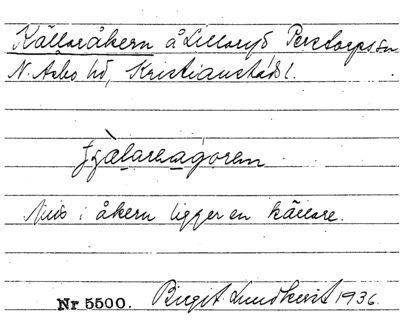 Källaråkern å Lillaryd Perstorps sn
N. Asbo hd, Kristianstads l.
Nids i åkern ligger en källare.
Nr 5500. Birgit Lundkvist 1936.